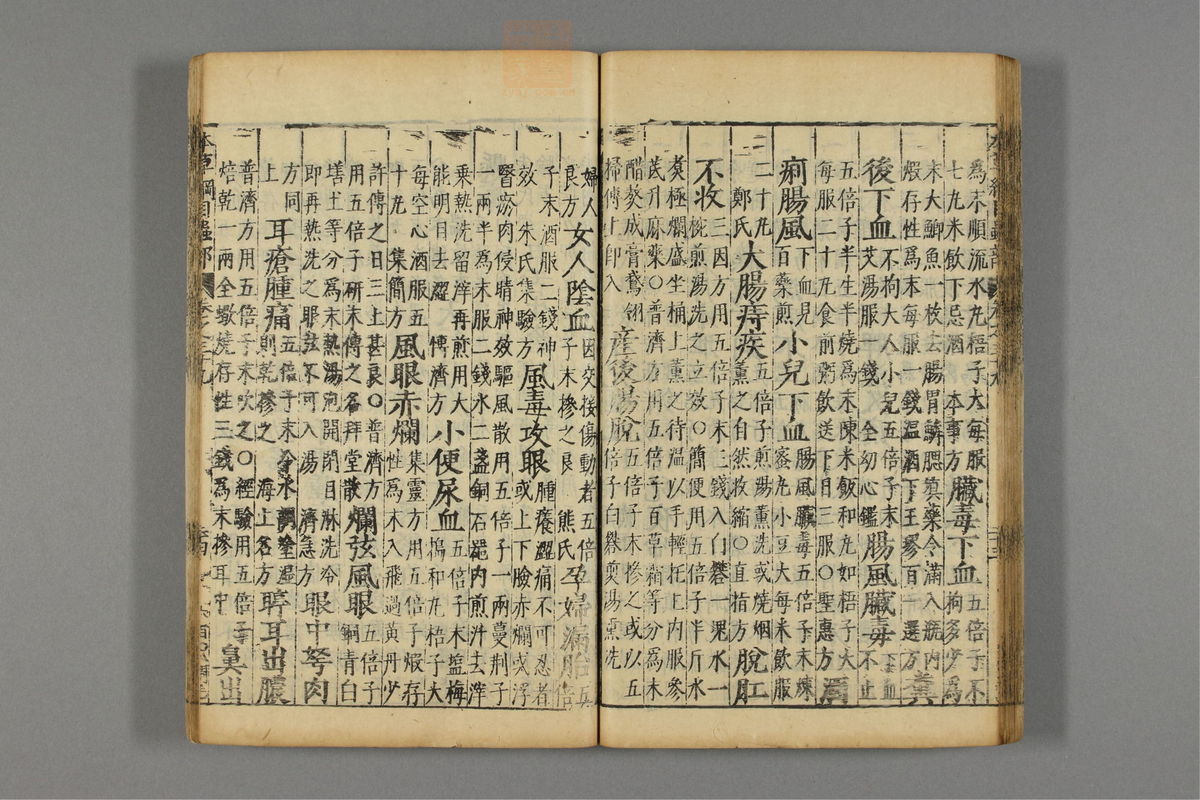 本草綱目蟲部
為末順流水丸梧子大每服七丸米飲下忌酒 本事方 臟毒下血 五倍子不拘多少為
末大鯽魚一枚去腸胃鱗腮填藥令滿入瓶內煅存性為末每服一錢溫酒下王璆百一選方 糞
後下血 不拘大人小兒五倍子末艾湯服一錢 全幼心鑑 腸風臟毒 下血不止
五倍子半生半燒為末陳米飯和丸如梧子大每服二十丸食前粥飲送下日三服○聖惠方 酒
痢腸風 下血見百藥煎 小兒下血 腸風臟毒五倍子末煉蜜丸小豆大每米飲服
二十丸 鄭氏 大腸痔疾 五倍子煎湯薰洗或燒烟薰之自然收縮○直指方 脫肛
不收 三因方用五倍子末三錢入白礬一塊水一椀煎湯洗之立效○簡便用五倍子半斤水
煑極爛盛坐桶上薰之待溫以手輕托上內服參芪升麻藥○普濟方用五倍子百草霜等分為末
醋熬成膏鵝翎掃傅上卽入 產後腸脫 五倍子末摻之或以五倍子白礬煎湯熏洗
婦人良方 女人陰血 因交接傷動者五倍子末摻之良 熊氏 孕婦漏胎 五倍
子末酒服二錢神效 朱氏集驗方 風毒攻眼 腫癢澀痛不可忍者或上下瞼赤爛或浮
翳瘀肉侵睛神效驅風散用五倍子一兩蔓荆子一兩半為末服二錢水二盞銅石器內煎汁去滓
乘熱洗留滓再煎用大能明目去澀 博濟方 小便尿血 五倍子末鹽梅搗和丸梧子大
每空心酒服五十丸 集簡方 風眼赤爛 集靈方用五倍子煅存性為末入飛過黃丹少
許傅之日三上甚良○普濟方用五倍子研末傅之名拜堂散 爛弦風眼 五倍子銅青白
墡土等分為末熱湯泡開閉目淋洗冷即再熱洗之眼弦不可入湯 濟急方 眼中弩肉
方同上 耳瘡腫痛 五倍子末冷水調塗濕則乾摻之 海上名方 聤耳出膿
普濟方用五倍子末吹之○經驗用五倍子焙乾一兩全蠍燒存性三錢為末摻耳中 鼻出
本草綱目蟲部